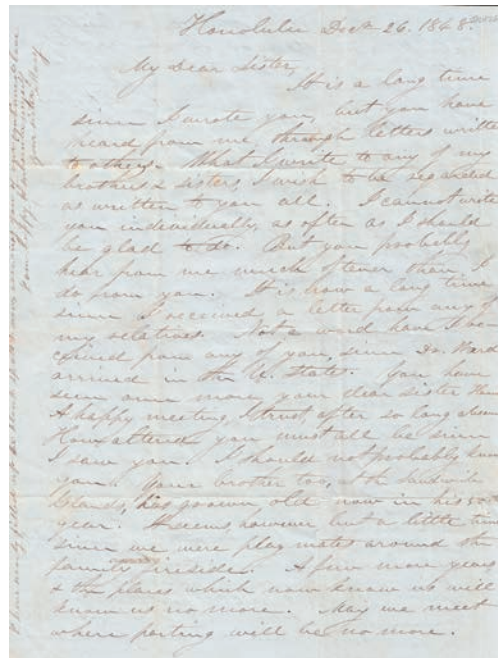 Honolulu Decr 26. 1848.
My Dear Sister,
It is a long time
since I wrote you, but you have
heard from me through letters written
to others. What I write to any of my
brothers & sisters I wish to be regarded
as written to you all. I cannot write
you individually, as often as I should
be glad to do. But you probably
hear from me much oftener than I
do from you. It is now a long time
since I received a letter from any of
my relatives. Not a word have I re-
ceived from any of you, since Dr. Ward
arrived in the U. States. You have
seen once more your dear sister
A happy meeting, I trust, after so long
How altered you must all be since
I saw you. I should not probably know
you. Your brother too, at the Sandwich
Islands, has grown old now in his 50
year. It seems, however but a little time
since we were play mates around the
family fireside. A few more years
& the places which now know us will
know us no more. May we meet
where parting will be no more.